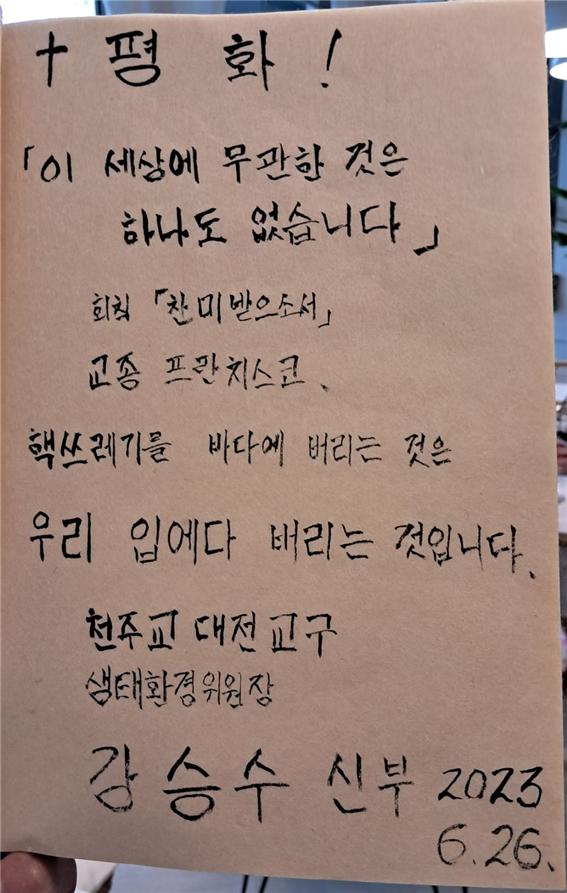 † 평 화 !
「이 세상에 무관한 것은
하나도 없습니다」
회칙 「찬미받으소서」
교종 프란치스코.
핵쓰레기를 바다에 버리는 것은
우리 입에다 버리는 것입니다.
천주교 대전교구
생태환경위원장
강승수 신부 2023
6.26.